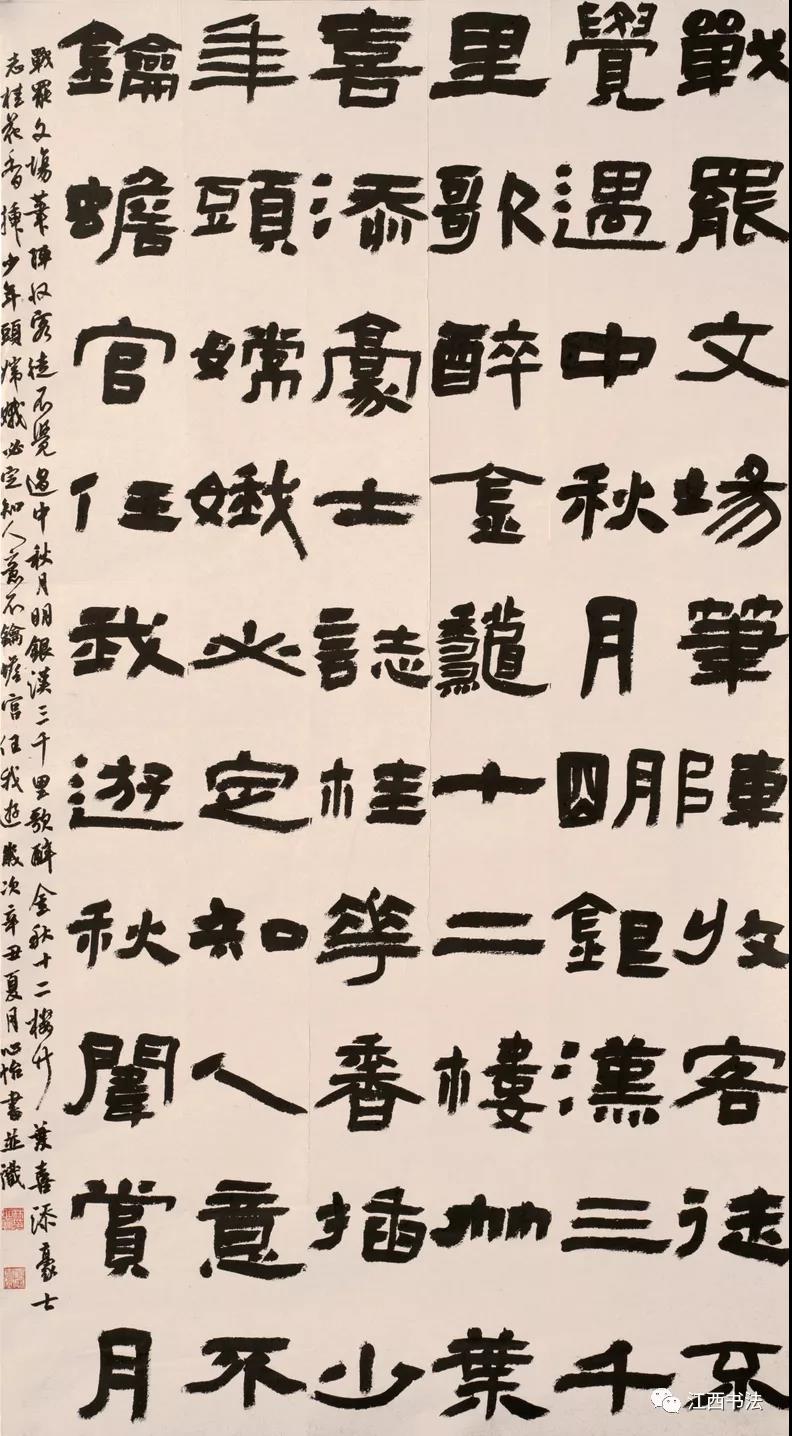 戰罷文場筆陣收客徒不
覺遇中秋月明銀漢三千
里歌醉金龝十二樓竹葉
喜添豪士誌桂華香插少
年頭嫦娥必定知人意不
鑰蟾官任我遊秋闈賞月
戰罷文場筆陣收客徒不覺遇中秋月明銀漢三千里歌醉金秋十二樓竹葉喜添豪士
志桂花香插少年頭嫦娥必定知人意不鑰蟾宮任我遊歲次辛丑夏月心怡書並識
江西书法